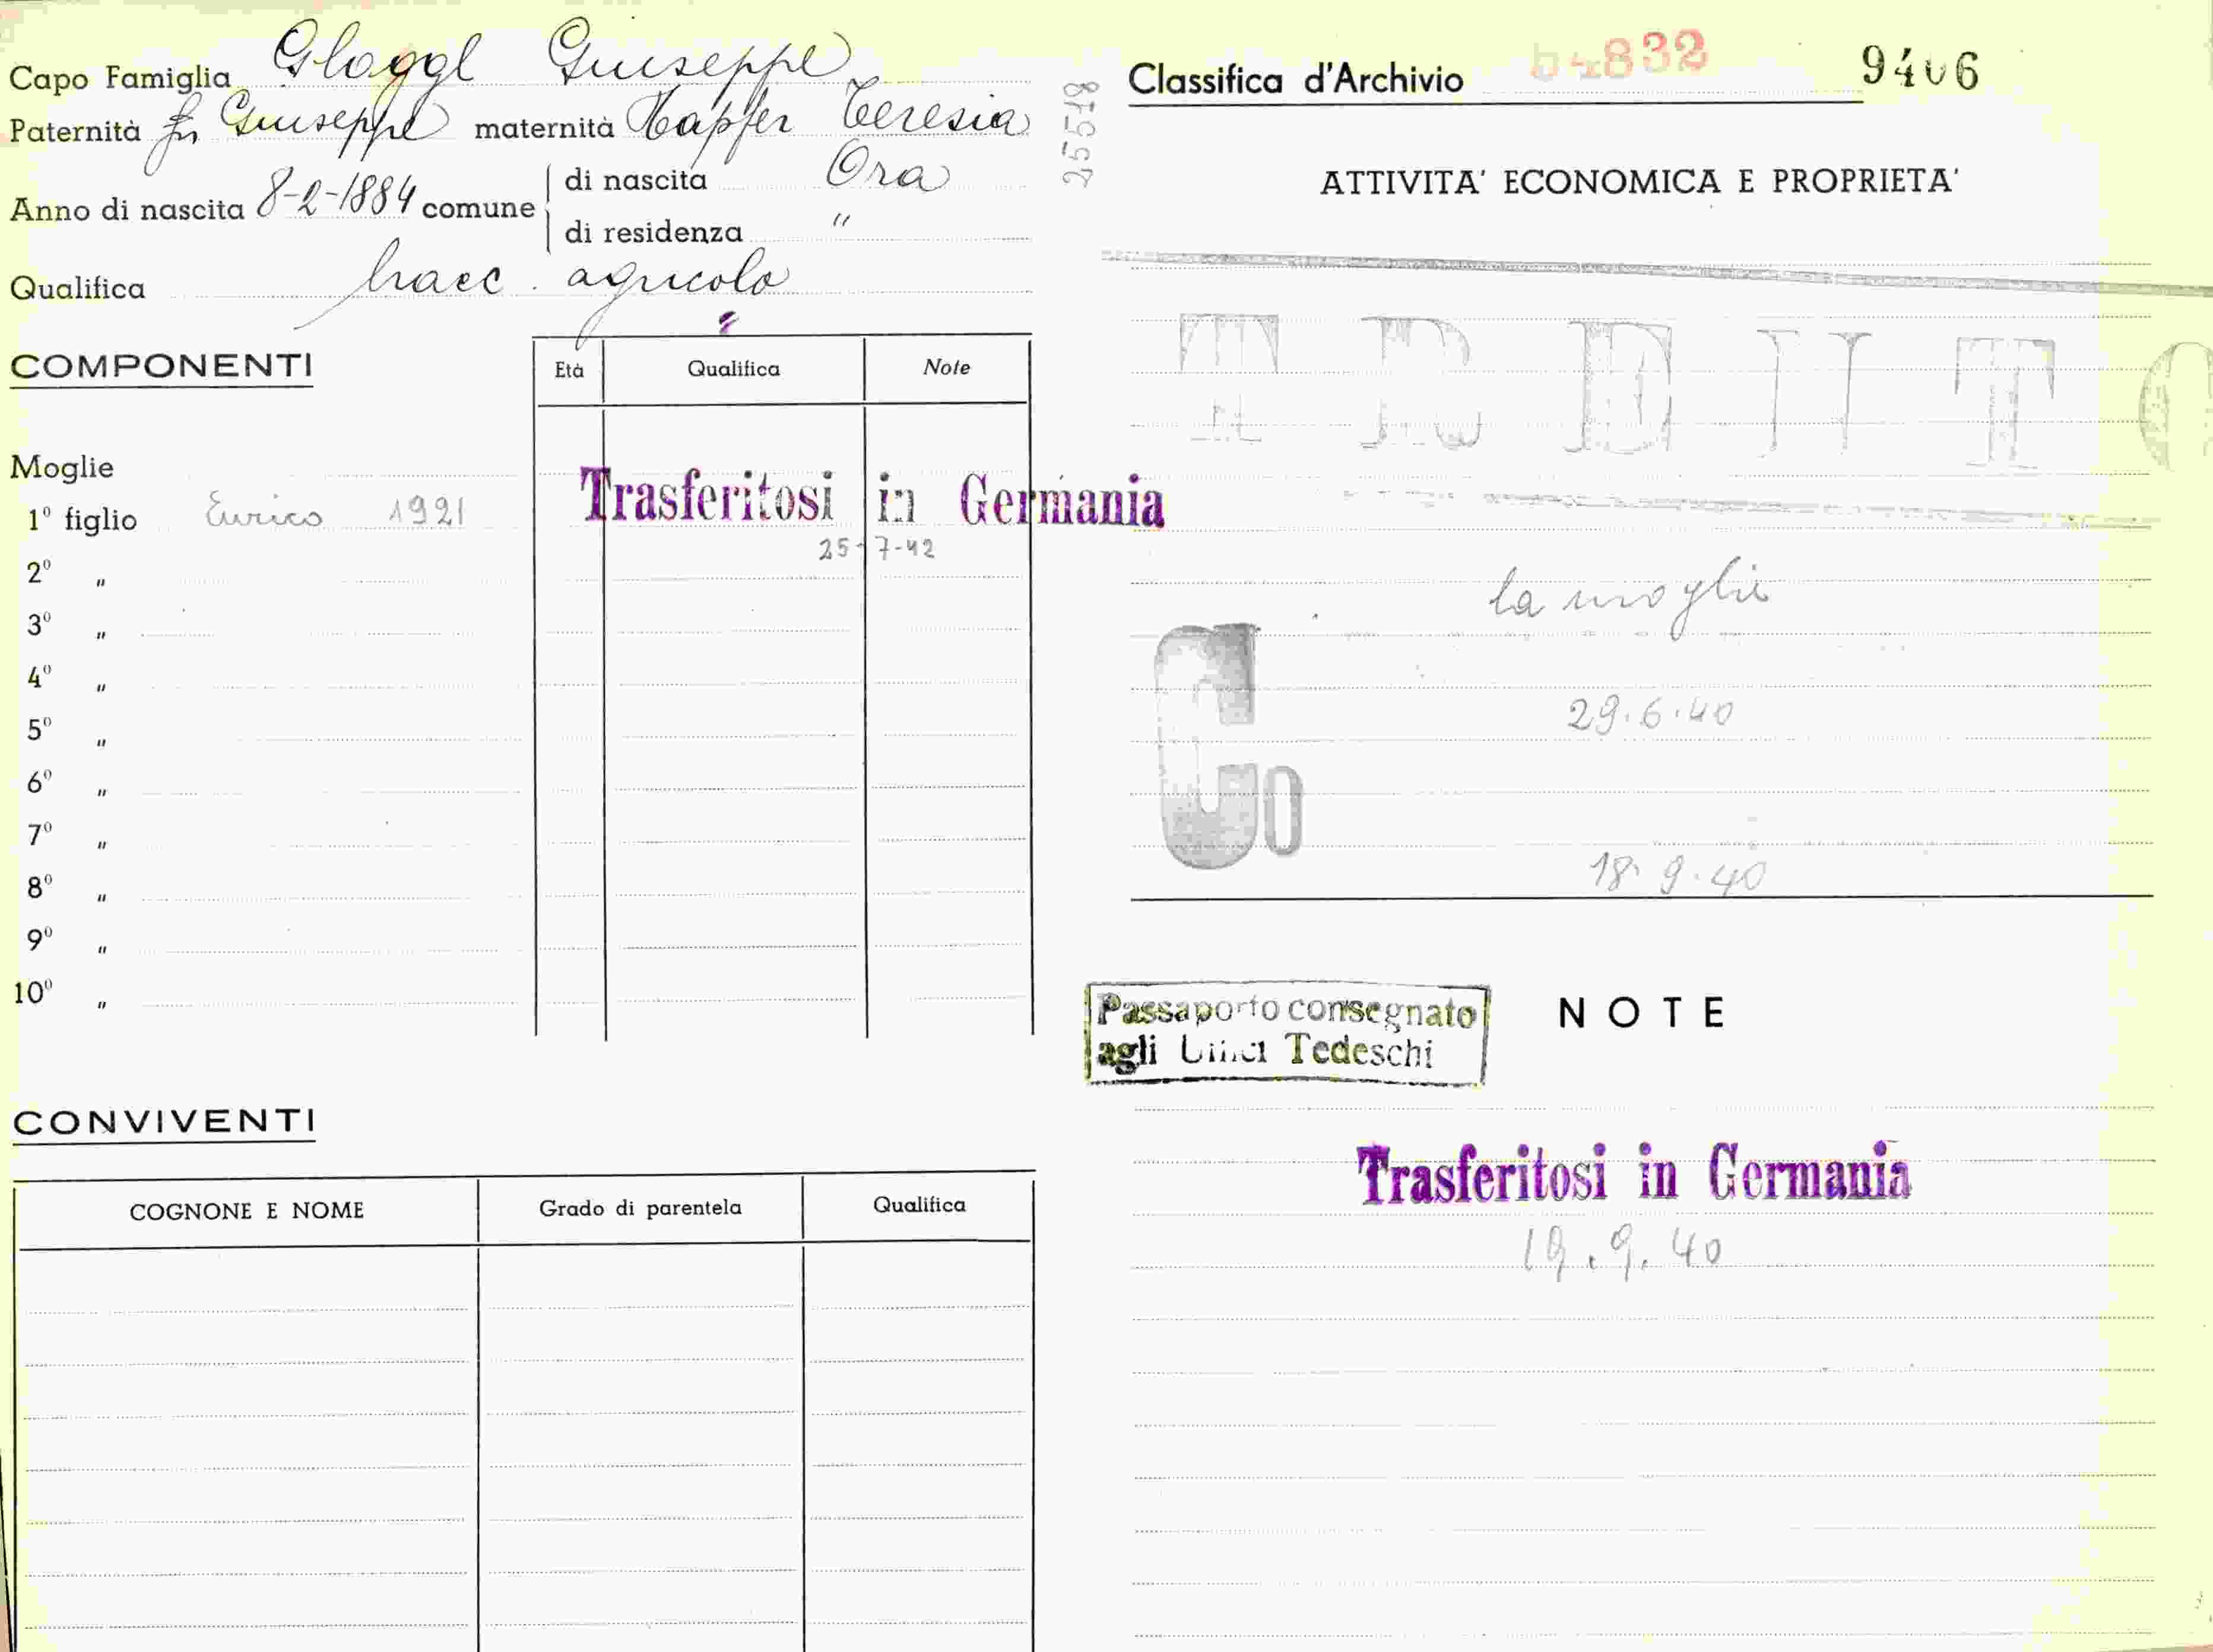 Capo Famiglia Gloggl Giuseppe
Paternità fu Giuseppe maternità Hapfer Teresia
Anno di nascita 8-2-1884 comune di nascita Ora
di residenza "
Qualifica bracc. agricolo
COMPONENTI
Età Qualifica Note
Moglie
1° figlio Enrico 1921
Trasferitosi in Germania
25-7-42
2° "
3° "
4° "
5° "
6° "
7° "
8° "
9° "
10° "
CONVIVENTI
COGNONE E NOME Grado di parentela Qualifica
255518
Classifica d'Archivio 9406
ATTIVITA' ECONOMICA E PROPRIETA'
la moglie
29.6.40
18.9.40
Passaporto consegnato
agli Uffici Tedeschi
NOTE
Trasferitosi in Germania
19.9.40